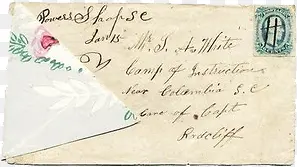 Powers Shop S C
Mr. S. A. White
Camp of Instruction
near Columbia S. C
Care of Capt
Radcliff